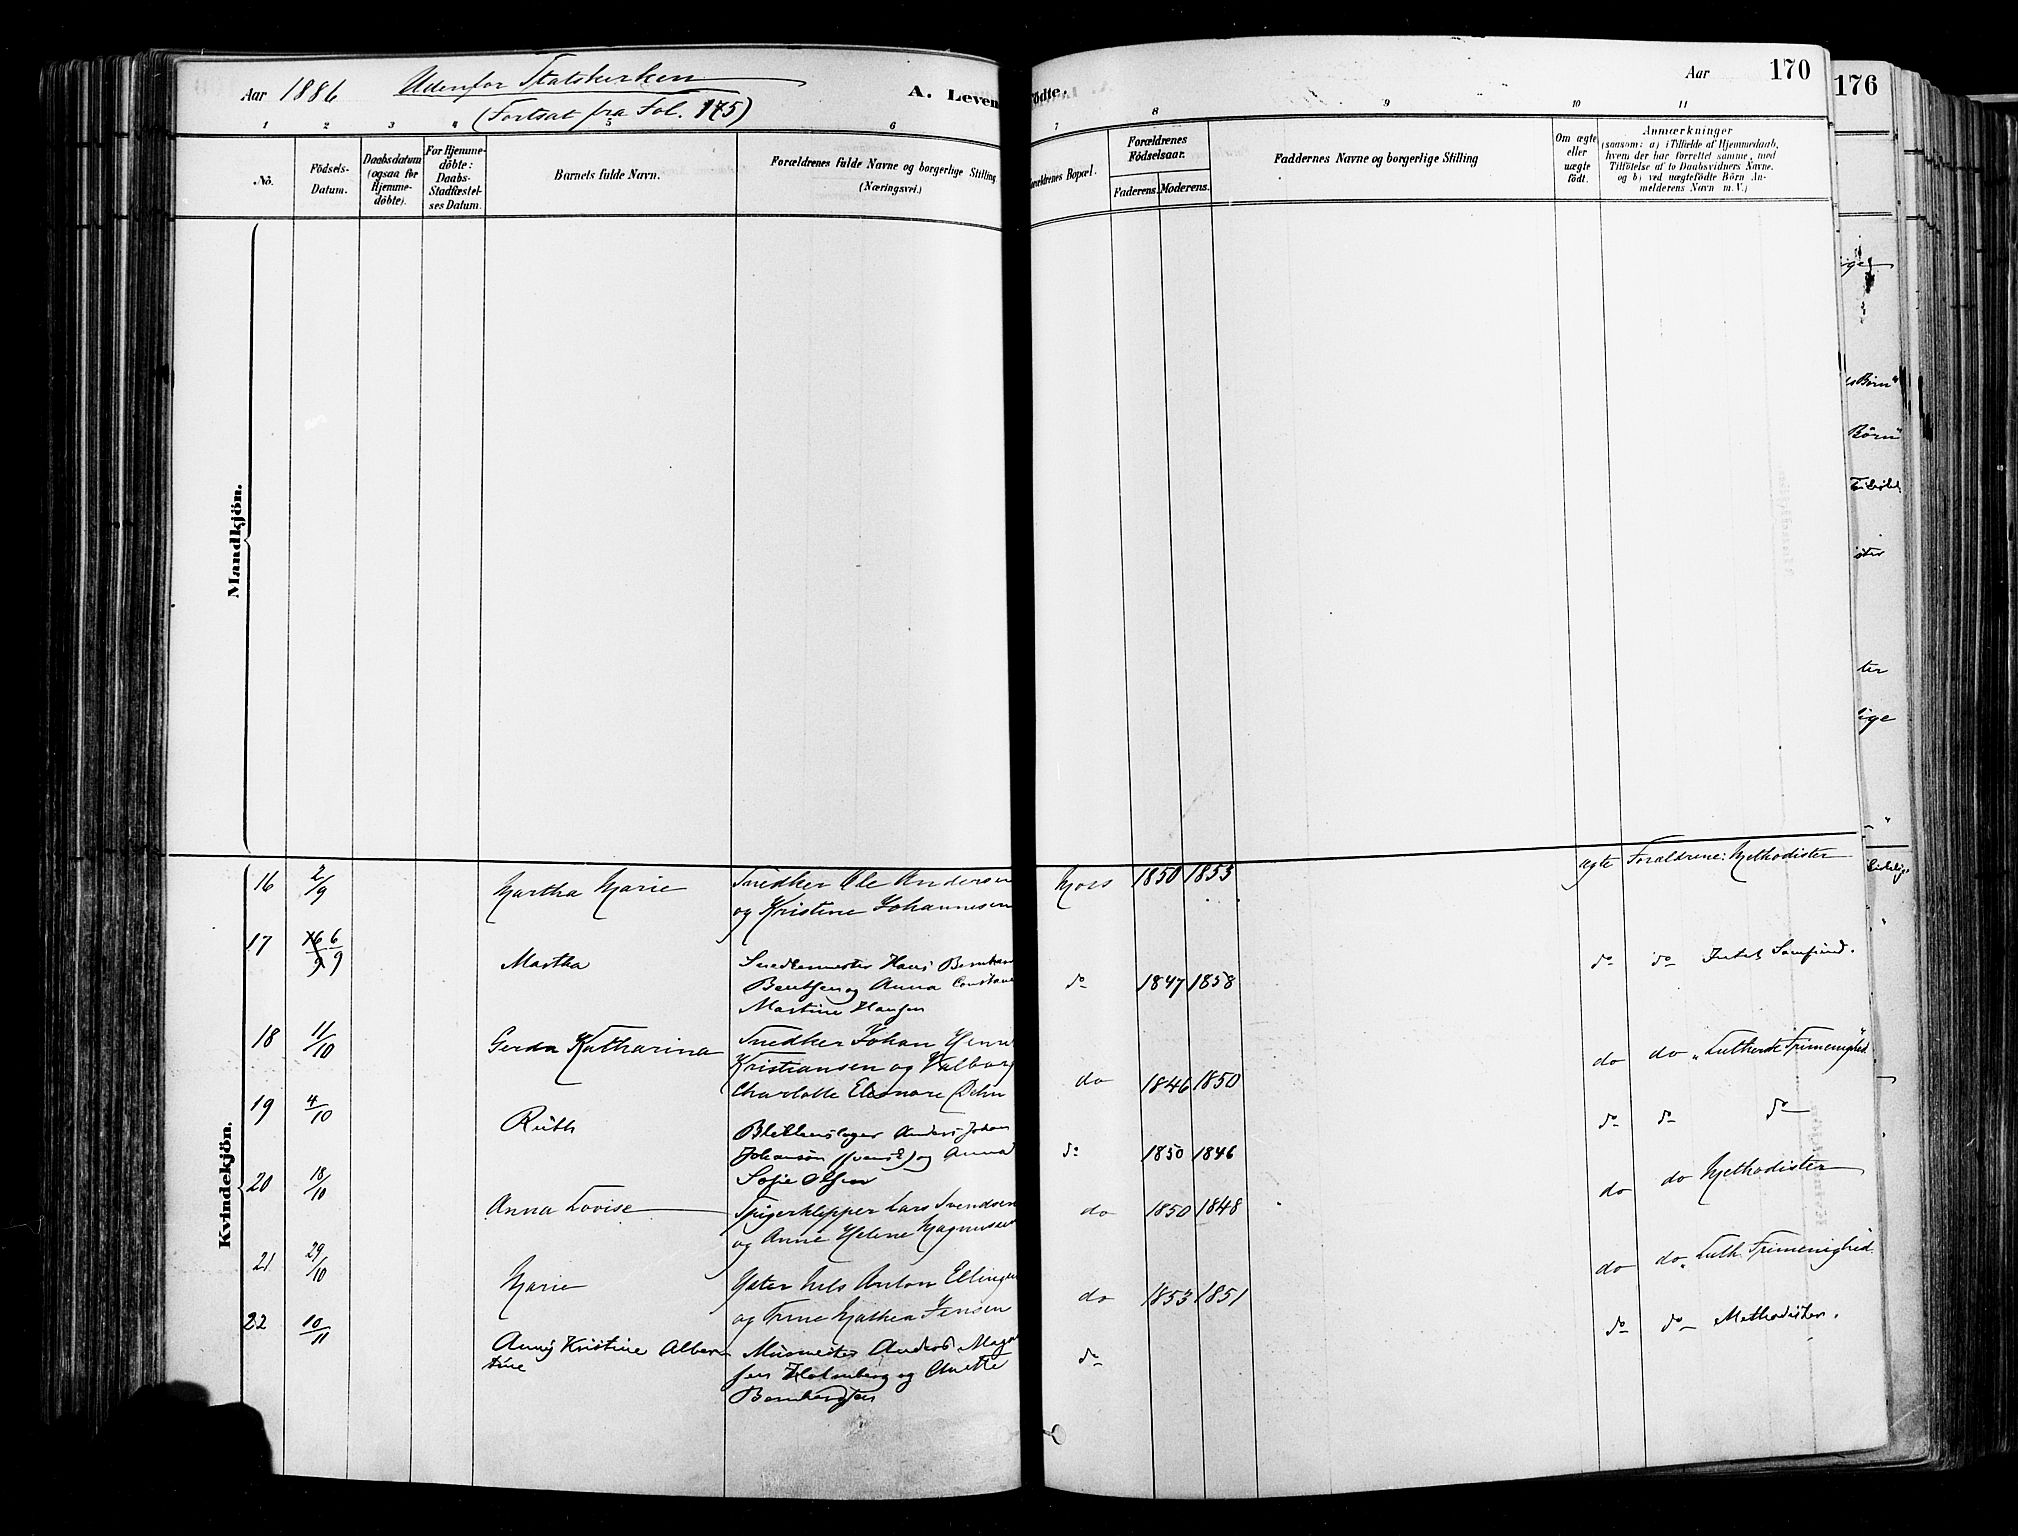 Aar 1886 Udenfor Statskirken
(Fortsat fra Fol. 175)
A. Levende
Födte.
Aar 170
176
1 2 3 4 5 6 7 8 9 10 11
No.
Födsels-Datum.
Daabsdatum (ogsaa for Hjemme-döbte).
For Hjemme-döbte: Daabs-Stadfæstel-ses Datum.
Barnets fulde Navn.
Forældrenes fulde Navne og borgerlige Stilling (Næringsvei.)
Forældrenes Bopæl.
Forældrenes Födselsaar.
Faderens. Moderens.
Faddernes Navne og borgerlige Stilling
Om ægte eller uægte födt.
Anmærkninger
(saasom: a) i Tilfælde af Hjemmedaab, hvem der har forrettet samme, med Tilföielse af to Daabsvidners Navne. og b) ved uægtefödte Börn An-melderens Navn m. V.)
Mandkjön.
Kvindekjön.
16 2/9 Martha Marie Snedker Ole Andersen Moss 1850 1853 ægte Forældrene: Methodister
og Kristine Johannesen
17 6/9 Martha Snedkermester Hans Bernhard do 1847 1858 do do Intet Samfund.
Bentsen og Anna Constance
Martine Hansen
18 11/10 Gerda Katharina Snedker Johan Henri do 1846 1850 do do "Lutherske Frimenighed"
Kristiansen og Valborg
Charlotte Eleonore Dehn
19 4/10 Ruth Blikkenslager Anders Johan do 1850 1846 do do do
Johansón (svensk) og Anna
Sofie Olsen
20 18/10 Anna Lovise Spigerklipper Lars Svendsen do 1850 1848 do do Methodister
og Anne Helene Magnussen
21 29/10 Marie Nils Anton Ellingsen do 1853 1851 do do "Luth. Frimenighed
og Trine Mathea Jensen
22 10/11 Anny Kristine Alber- Murmester Anders Mag- do do do Methodister.
tine sen Holmberg og Anette
Bernhardsen